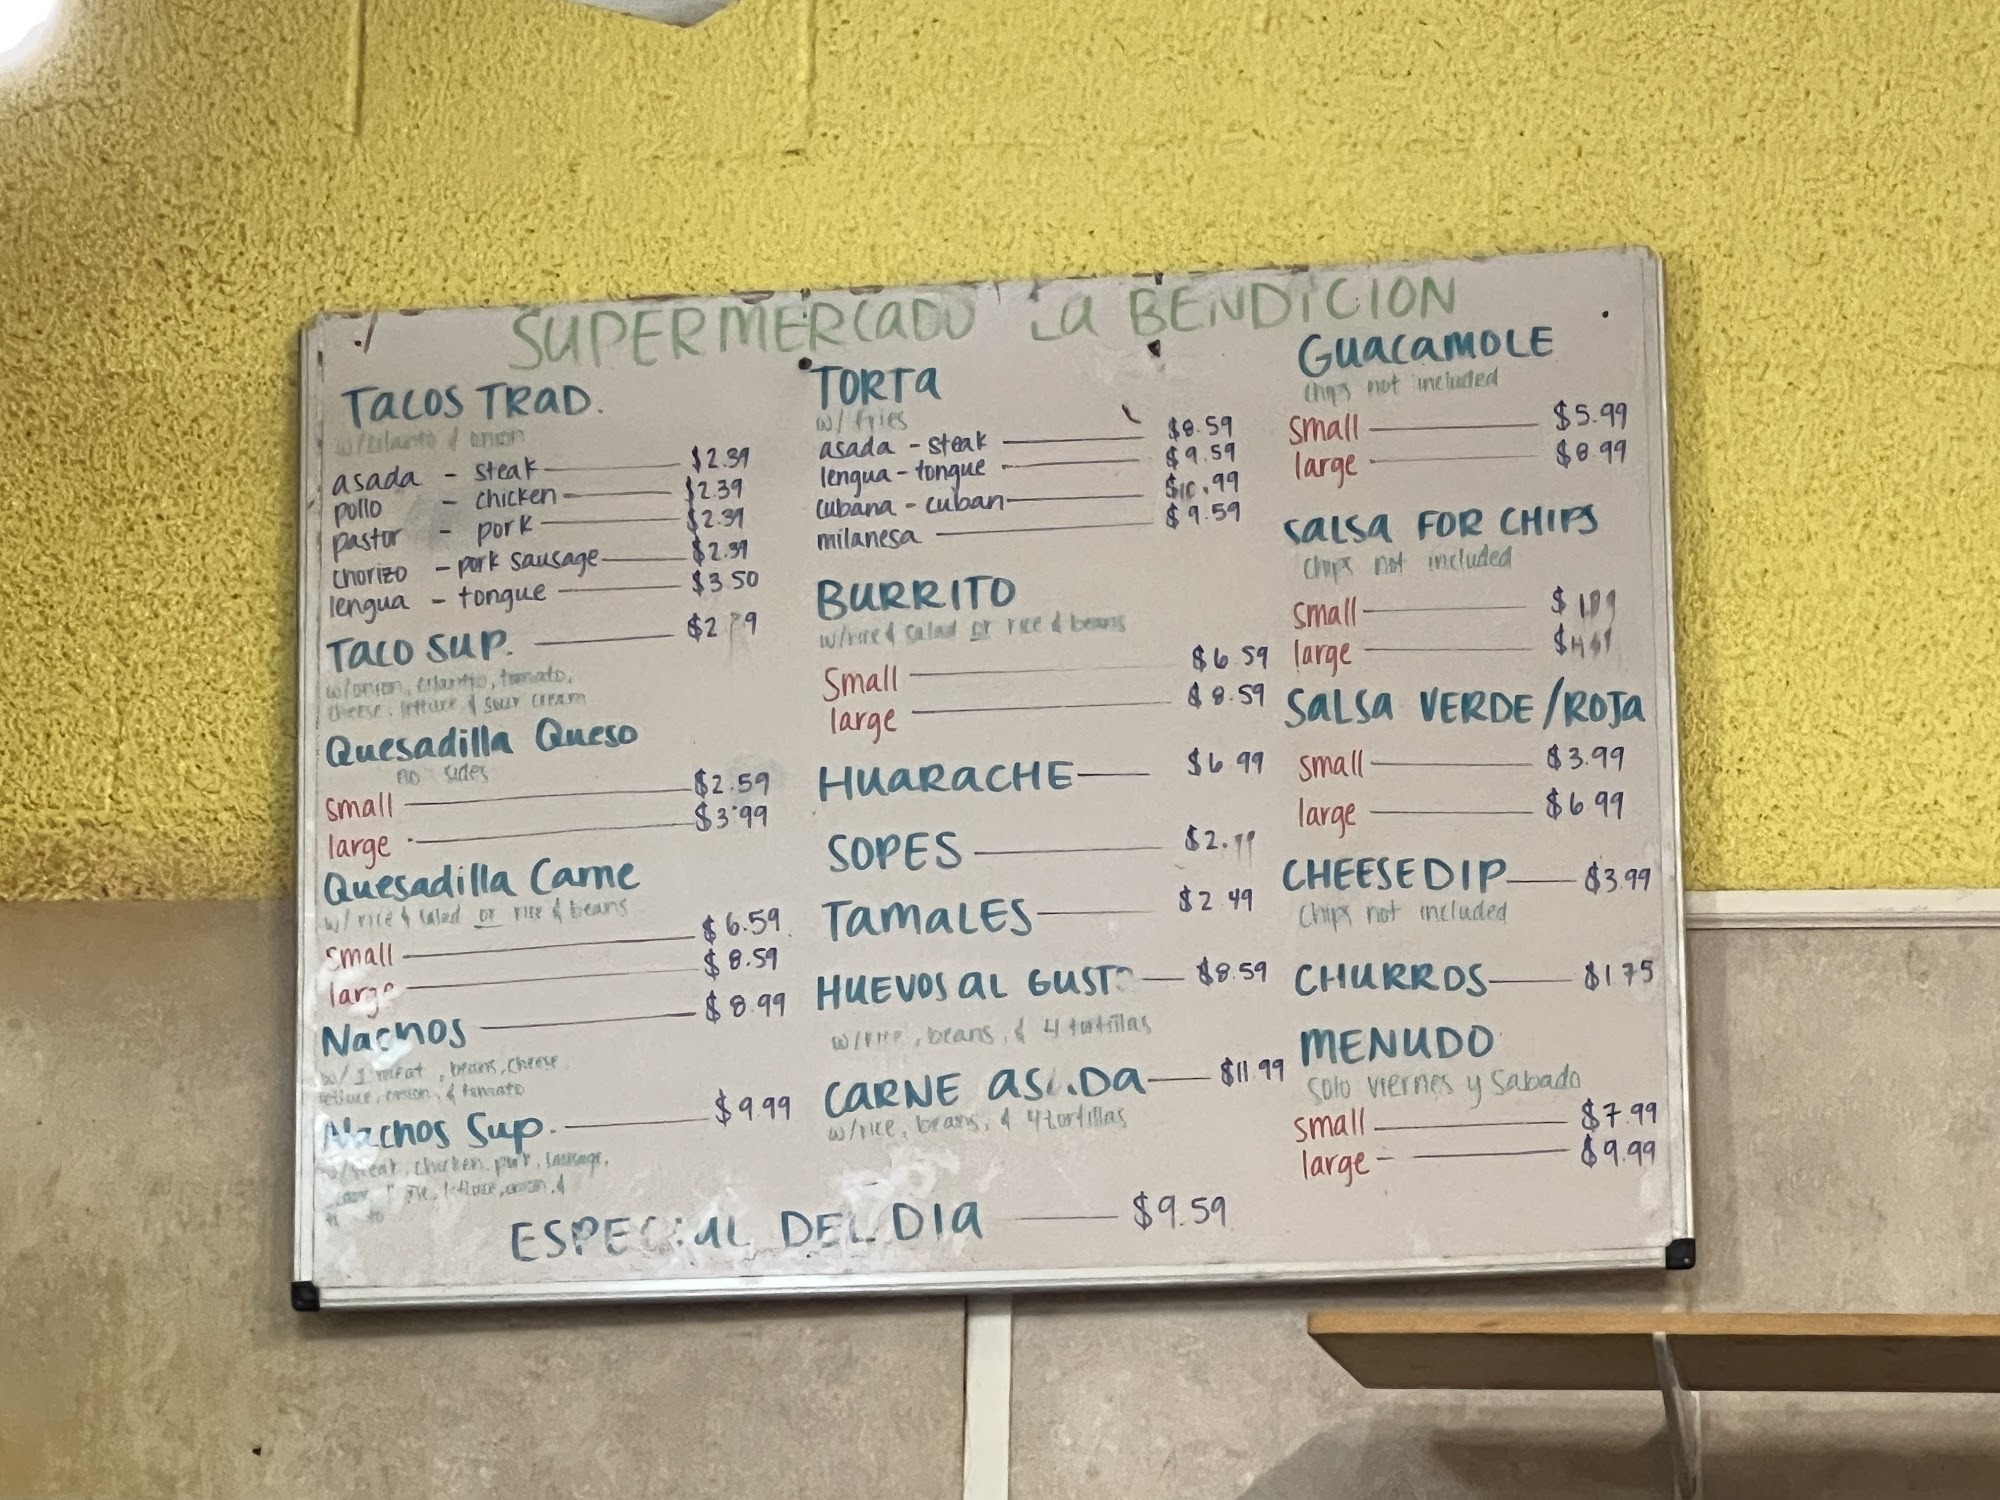 SUPERMERCADO La BENDICION
TACOS TRAD.
w/cilantro & onion
asada - steak $2.39
pollo - chicken $2.39
pastor - pork $2.39
chorizo - pork sausage $2.39
lengua - tongue $3.50
TACO SUP. $2
w/onion, cilantro, tomato,
cheese, lettuce & sour cream
Quesadilla Queso
no sides
small $2.59
large $3.99
Quesadilla Carne
w/ rice & salad or rice & beans
small $6.59
large $8.59
Nachos $8.99
w/ 1 meat, beans, cheese
lettuce, onion, & tomato
Nachos Sup. $9.99
w/steak, chicken, pork, sausage,
lettuce, onion, &
TORTA
w/ fries
asada - steak $8.59
lengua - tongue $9.59
cubana - cuban $10.99
milanesa $9.59
BURRITO
w/rice & salad or rice & beans
small $6.59
large $8.59
HUARACHE $6.99
SOPES
TAMALES $2.49
HUEVOS AL GUSTO $8.59
w/rice, beans, & 4 tortillas
CARNE ASADA $11.99
w/rice, beans, & 4 tortillas
GUACAMOLE
chips not included
small $5.99
large $8.99
SALSA FOR CHIPS
chips not included
small
large
SALSA VERDE/ROJA
small $3.99
large $6.99
CHEESE DIP $3.99
chips not included
CHURROS $1.75
MENUDO
solo viernes y sabado
small $7.99
large $9.99
ESPECIAL DEL DIA $9.59